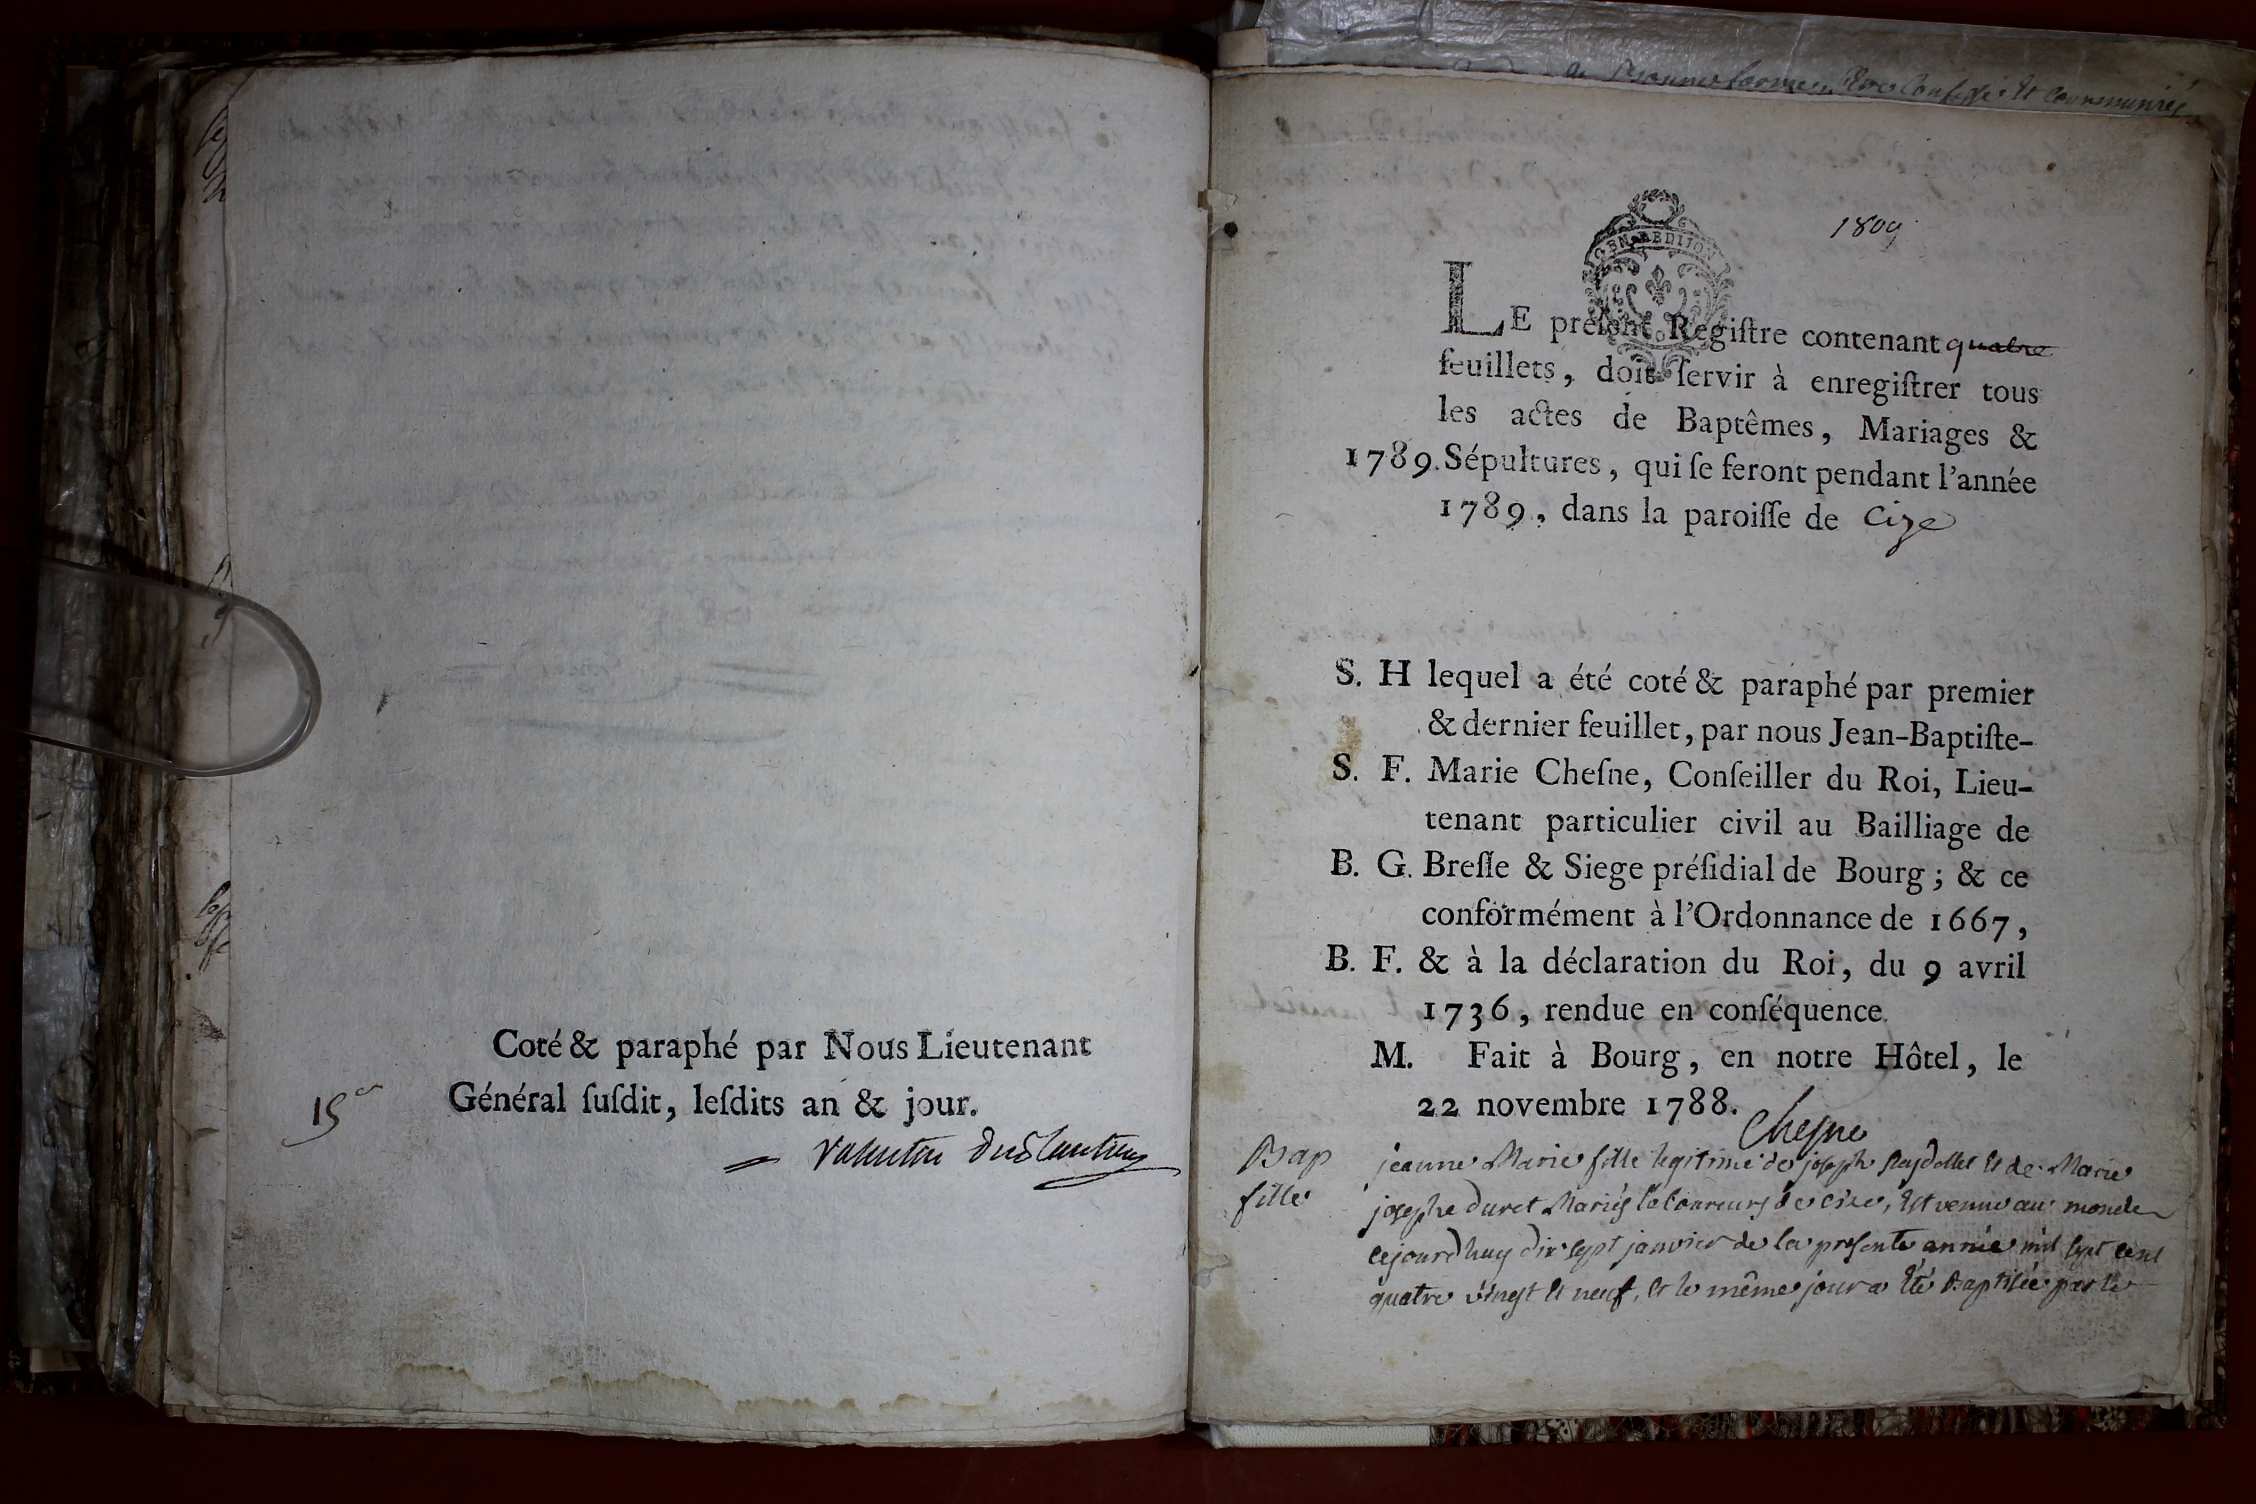 Coté & paraphé par Nous Lieutenant
Général ſuſdit, leſdits an & jour.
15
de Confessé et communiés
1809
GEN. DE DIJON
LE préſent Regiſtre contenant quatre
feuillets, doit ſervir à enregiſtrer tous
les actes de Baptêmes, Mariages &
1789. Sépultures, qui ſe feront pendant l'année
1789, dans la paroiſſe de Cize
S. H lequel a été coté & paraphé par premier
& dernier feuillet, par nous Jean-Baptiſte-
S. F. Marie Cheſne, Conſeiller du Roi, Lieu-
tenant particulier civil au Bailliage de
B. G. Breſſe & Siege préſidial de Bourg; & ce
conformément à l'Ordonnance de 1667,
B. F. & à la déclaration du Roi, du 9 avril
1736, rendue en conſéquence.
M. Fait à Bourg, en notre Hôtel, le
22 novembre 1788.
Chesne
Bap
fille
jeanne Marie fille legitime de joseph Reydellet et de Marie
josephe duret Mariés laboureurs de Cize, est venue au monde
cejourdhuy dix sept janvier de la presente année mil sept cent
quatre vingt et neuf, et le même jour a été Baptisée par le